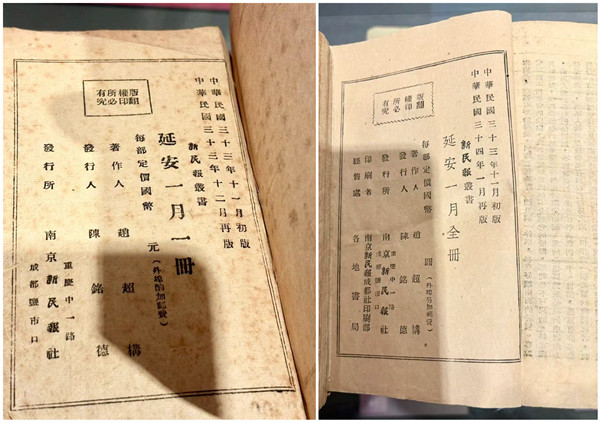 中華民國三十三年十一月初版
中華民國三十三年十二月再版
新民報叢書
延安一月一冊
每部定價國幣 元(外埠酌加郵費)
著作人 趙超構
發行人 陳銘德
發行所 南京新民報社
重慶中一路
成都鹽市口
版權所有
翻印必究
中華民國三十三年十一月初版
中華民國三十四年一月再版
新民報叢書
延安一月全冊
每部定價國幣 四(外埠酌加郵費)
著作人 趙超構
發行人 陳銘德
發行所 南京新民報社
重慶中一路
印刷者 南京新民報成都社印刷部
經售處 各地書局
版權所有
翻印必究